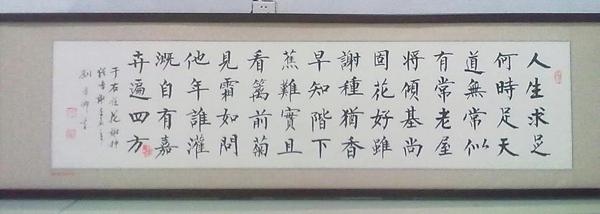 人生求足
何時足天
道無常似
有常老屋
將傾基尚
固花好雖
謝種猶香
早知階下
蕉難實且
看籬前菊
見霜如問
他年誰灌
溉自有嘉
卉遍四方
于右任